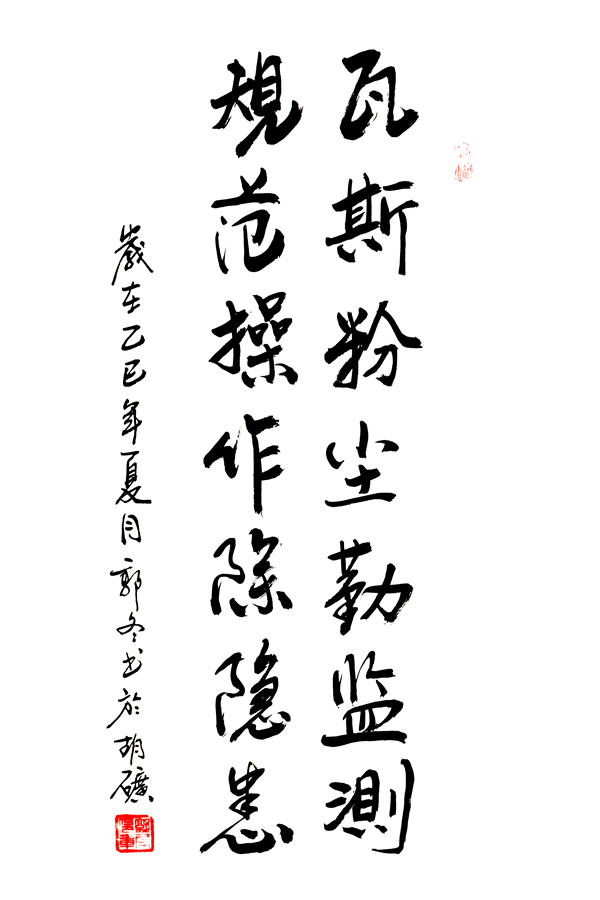 瓦斯粉尘勤监测
規范操作除隐患
歲在乙巳年夏月郭冬书於胡礦